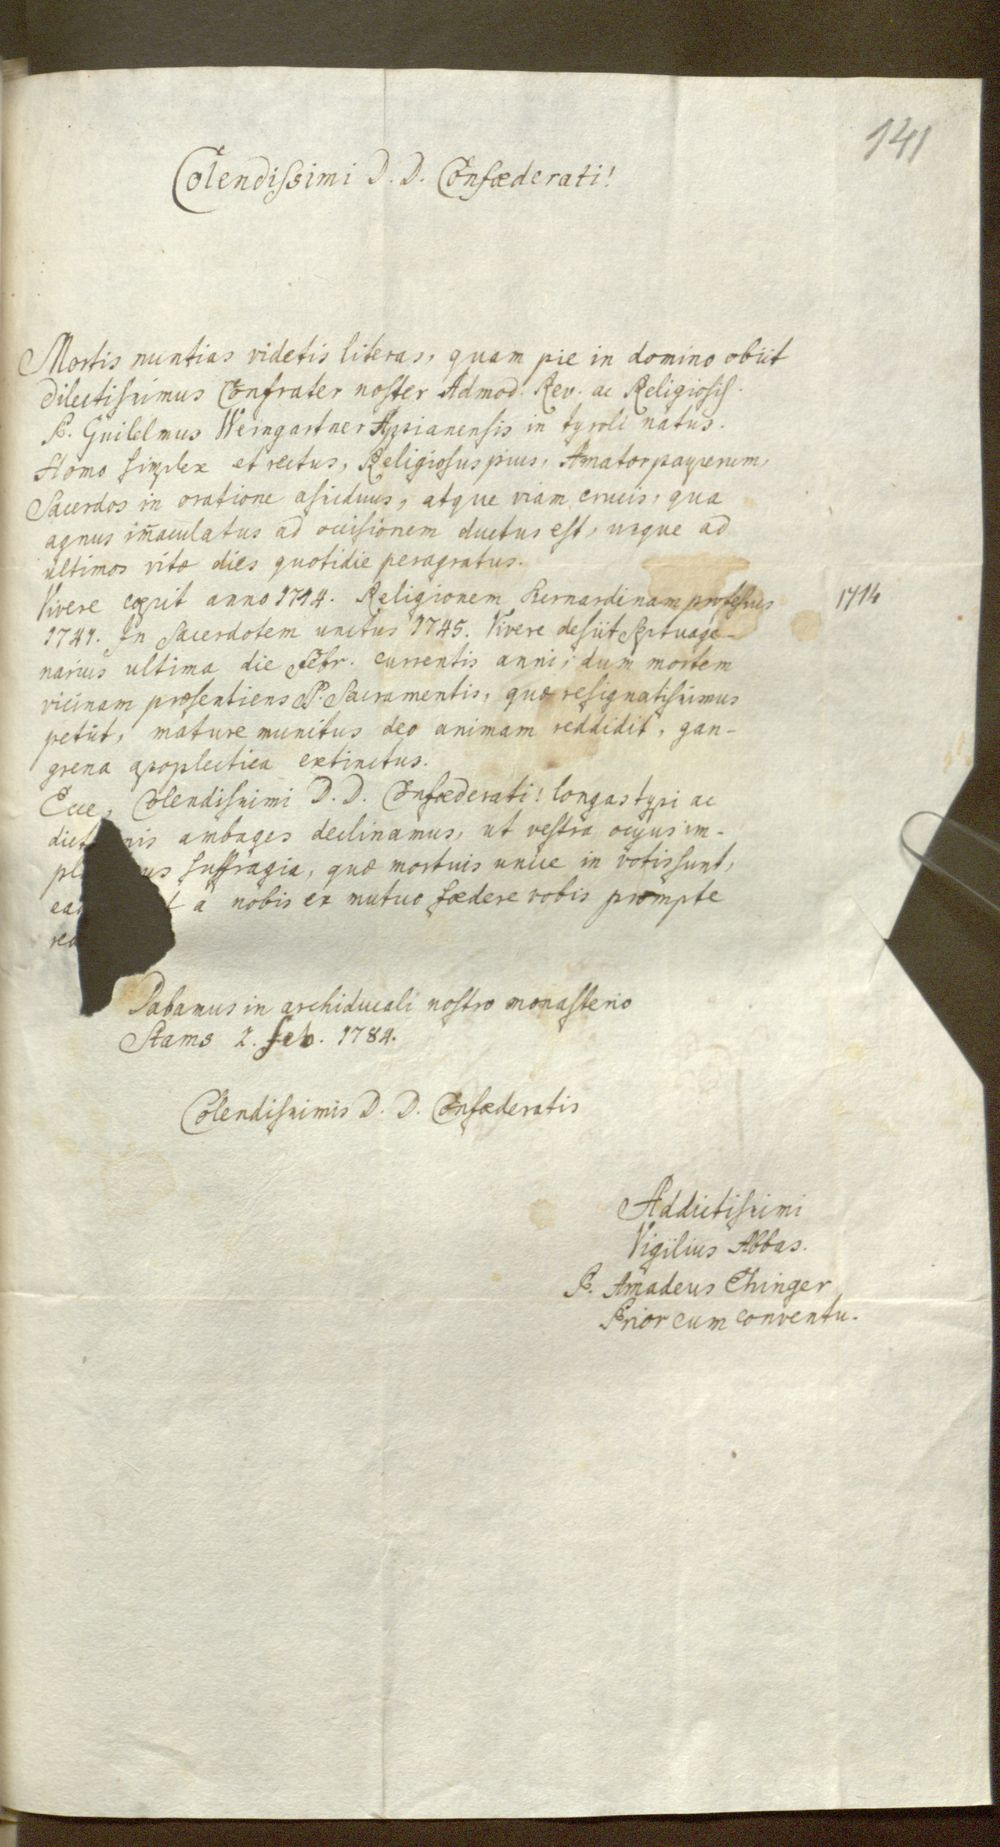 141
Colendissimi D. D. Confœderati!
Mortis nuntias videtis literas, quam pie in domino obiit
dilectissimus Confrater noster Admod. Rev. ac Religiosis.
P. Guilelmus Weingartner Appianensis in tyroli natus.
Homo simplex et rectus, Religiosus pius, Amator pauperum,
Sacerdos in oratione assiduus, atque viam crucis, qua
agnus im̄aculatus ad occisionem ductus est, usque ad
ultimos vitæ dies quotidie peragratus.
Vivere cœpit anno 1714. Religionem Bernardinam professus 1714
1741. In Sacerdotem unctus 1745. Vivere desiit Septuage-
narius ultima die Febr. currentis anni; dum mortem
vicinam præsentiens SS. Sacramentis, quæ resignatissimus
petiit, mature munitus deo animam reddidit, gan-
grena apoplectica extinctus.
Ecce, Colendissimi D. D. Confœderati! longas typi ac
dict nis ambages declinamus, ut vestra ocyus im-
pl us suffragia, quæ mortuis unice in votis sunt,
ea t à nobis ex mutuo fœdere vobis prompte
re
Dabamus in archiducali nostro monasterio
Stams 2. feb. 1784.
Colendissimis D. D. Confœderatis
Addictissimi
Vigilius Abbas.
P. Amadeus Ehinger
Prior cum conventu.